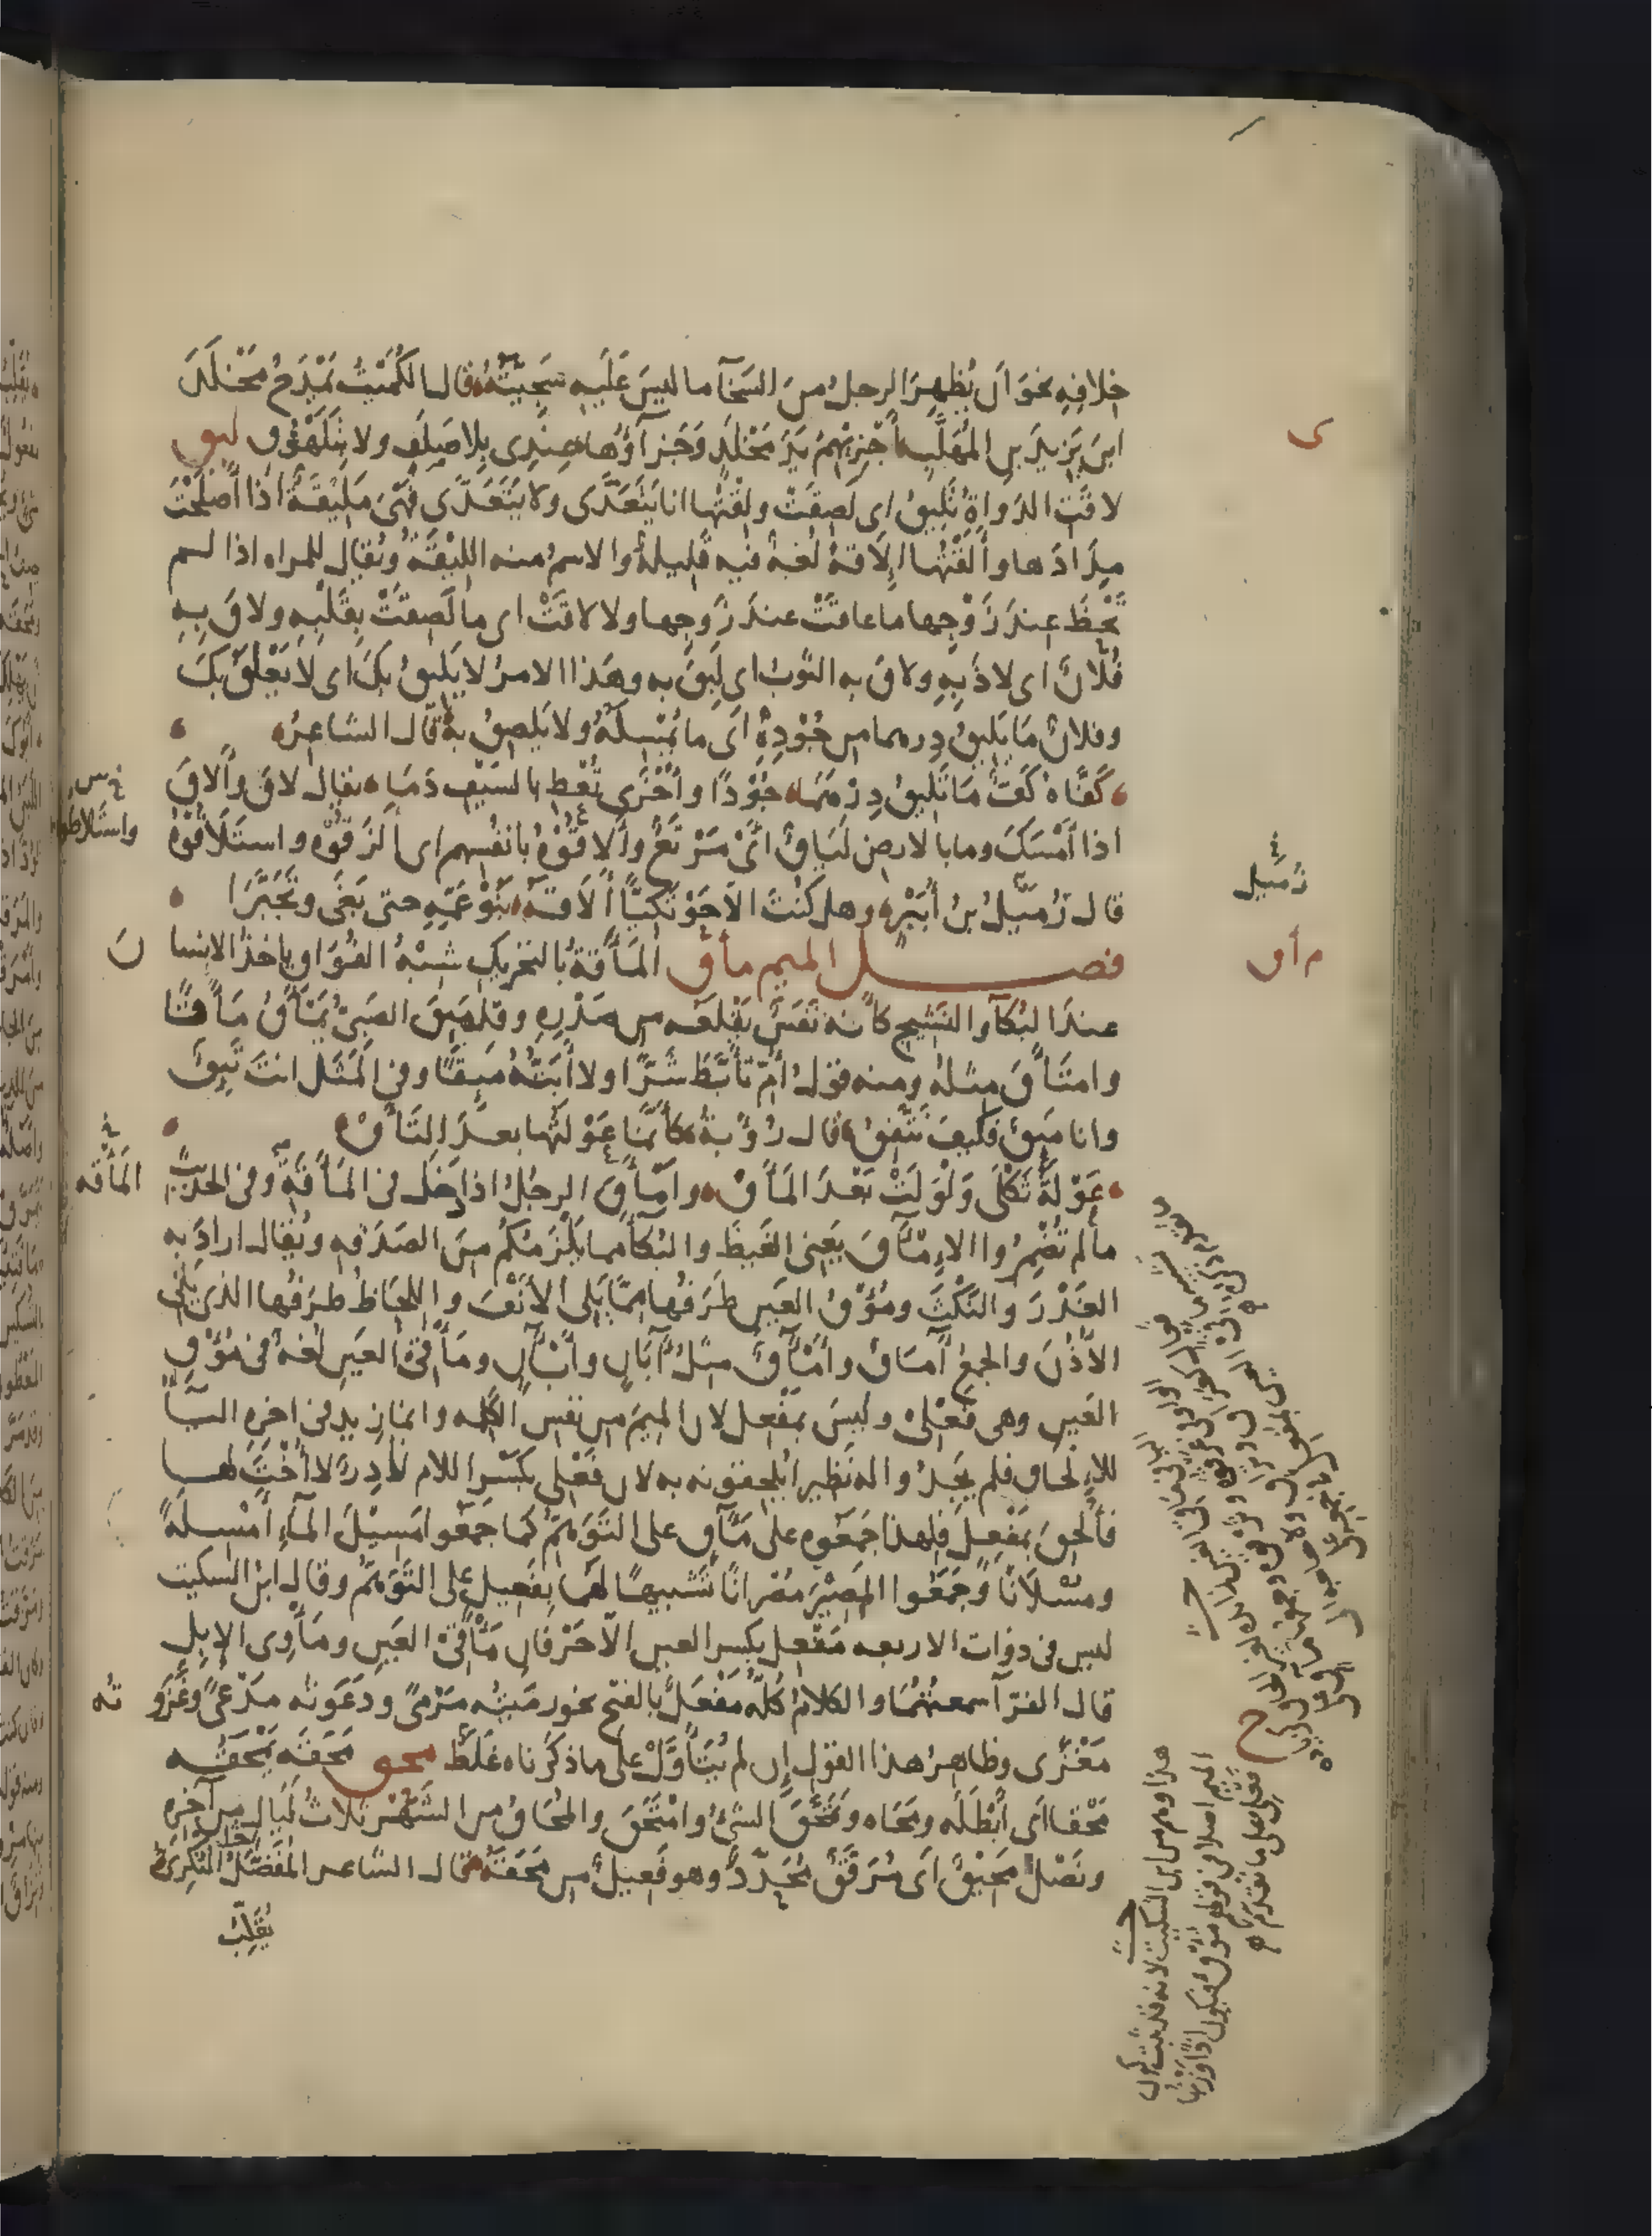 خلافه نحو أن يُظهرَ الرجلُ من السَخآ ما ليسَ عَلَيه سَجِيّتُهُ قال الكُمَيْتُ يَمْدَحُ مَخْلَدَ
ابنَ يَزيدَ بنِ المُهَلَّبِ أَجْزِيْهِمُ يَدَ مَخْلَدٍ وَجَزآؤُها عِنْدِى بِلا صَلَفٍ ولا بِتَلَهْوُقِ ليق
لاقَتِ الدَواةِ تَلِيقُ اى لَصِقَتْ ولِقْتُها انا يَتَعَدَّى ولا يَتَعَدَّى فَهْىَ مَلِيْقَةٌ اذا أَصْلَحْتَ
مِدَادَها وأَلَقْتُها إلاقةً لُغَةٌ فيه قَلِيلةٌ والاسمُ منه اللِيْقَةُ ويُقال للمراه اذا لم
تَحْظَ عِندَ زَوْجِها ما عاقَتْ عندَ زَوجِها ولا لاقَتْ اى ما لَصِقَتْ بِقَلْبِه ولاقَ بِهِ
فُلانٌ اى لاذَ بِهِ ولاقَ به الثَوبُ اى لَبِقَ به وهَذا الامرُ لا يَليقُ بِكَ اى لا يَعْلَقُ بِكَ
وفلانٌ مَا يَلِيقُ دِرهما من جُوْدِهِ أى ما يُمْسِكُهُ ولا يَلصِقُ بِهِ قال الشاعرُ
كَفَّاهُ كَفٌّ مَا تُلِيقُ دِرْهَمَا جُوْدًا وأُخْرَى تُعْطِ بالسَيْفِ دَمَا يقال لاقَ وأَلاقَ
اذا أَمْسَكَ وما بالارضِ لَيَاقٌ أىْ مَرْتَعٌ وأَلاقُوْهُ بأنفُسهم اى أَلْزَقُوْهُ واستَلاقُوْهُ
خ س
واستلاطوا
قال زُمَيلُ بنُ أُبَيْرٍ وهل كُنْتَ الاحَوْتَكِيّاً أَلاقَهُ بَنُو عَمِّهِ حتى بَغَى وتَجَبَّرَا
زُميل
فصل الميم مأق المَأَقةُ بالتحريكِ شِبْهُ الفُوَاقِ ياخذُ الانسا نَ
م أق
عندَ البُكآ والنَشِيج كأنه نَفَسٌ يَقْلَعُه من صَدْرِهِ وقد مَئِقَ الصَبِىُّ يَمْأَقُ مَأَقًا
وامتَأَقَ مثلهُ ومنه قولُ أُمّ تَأَبَّطَ شَرًّا ولا أَبَتُّهُ مَئِقًا وفى المَثَل انتَ تَئِقٌ
وانا مَئِقٌ فكيفَ نَتَّفِقُ قال رُؤْبَةُ كأَنَّمَا عَوْلَتُها بعدَ التَأَقْ
عَوْلَةُ ثَكْلَى وَلْوَلَتْ بَعْدَ المَأَقْ وأَمْأَقَ الرجُلُ اذا دَخل فى المَأَقَةِ وفى الحديث
المَأْقَه
ما لم تُضْمِرُوا الإمْآقَ يَعْنِى الغَيظَ والبُكآ مما يَلْزَمُكُم مِنَ الصَدَقةِ ويُقال ارادَ به
الغَدْرَ والنَكْثَ ومُؤْقُ العَينِ طَرَفُها مِمّا يَلِى الأَنْفَ واللِحَاظُ طَرَفُها الذى يَلِى
الأُذُنَ والجمعُ آمَاقٌ وأَمْآقٌ مِثلُ آبَارٍ وأَبْآرٍ ومَأْقِى العَينِ لغةٌ فى مُؤْقِ
العَينِ وهى فَعْلِى وليسَ بمَفْعِل لان الميمَ من نفس الكلمه وانما زيد فى اخره اليآ
للإلحاق فلم يَجِدُوا له نَظيرا يُلحقونه به لان فَعْلِى بكَسْرِ اللام نَادِرٌ لا أُخْتَ لها
فأُلْحِقَ بمَفْعِلٍ فلهذا جَمَعُوه على مَآقٍ على التَوَهُّمِ كما جَمَعُوا مَسِيْلَ المآءِ أَمْسِلَةً
ومُسْلانًا وجَمَعُوا المَصِيْرَ مُصْرانًا تَشْبيهًا لهما بِفَعِيلٍ على التَوَهُّم وقال ابن السكيت
ليس فى ذوات الاربعه مَفْعِل بكسر العين الّا حَرْفانِ مَأْقِى العَينِ ومَأْوِى الإبِلِ
قال الفرّآ سمعتُهُما والكلامُ كُلّه مَفْعَلٌ بالفتح نحو رَمَيتُه مَرْمًى ودَعَوتُه مدْعًى وغَزَو تُه
مَغْزًى وظاهرُ هذا القول إن لم يُتَأَوَّلْ على ما ذكرناه غَلَطٌ محق مَحَقَه يَمْحَقُه
مَحْقا أى أَبْطَلَه ومَحَاه وتَمَحَّقَ الشئُ وامْتَحَقَ والمُحَاقُ من الشَهْرِ ثلاثُ لَيَالٍ من آخِرِه
ونَصْلٌ مَحِيْقٌ أى مُرَقَّقٌ مُحَدَّدٌ وهو فَعِيلٌ من مَحَقَهُ قال الشاعر المُفَضَّلُ النُّكْرِىُّ
يُقَلِّبُ
هذا وهم من ابن السكيت لانه قد ثبت كون
الميم اصلا فى قولهم مُؤْق فيكون اذًا وزنها
فَعْلِى على ما تقدّم